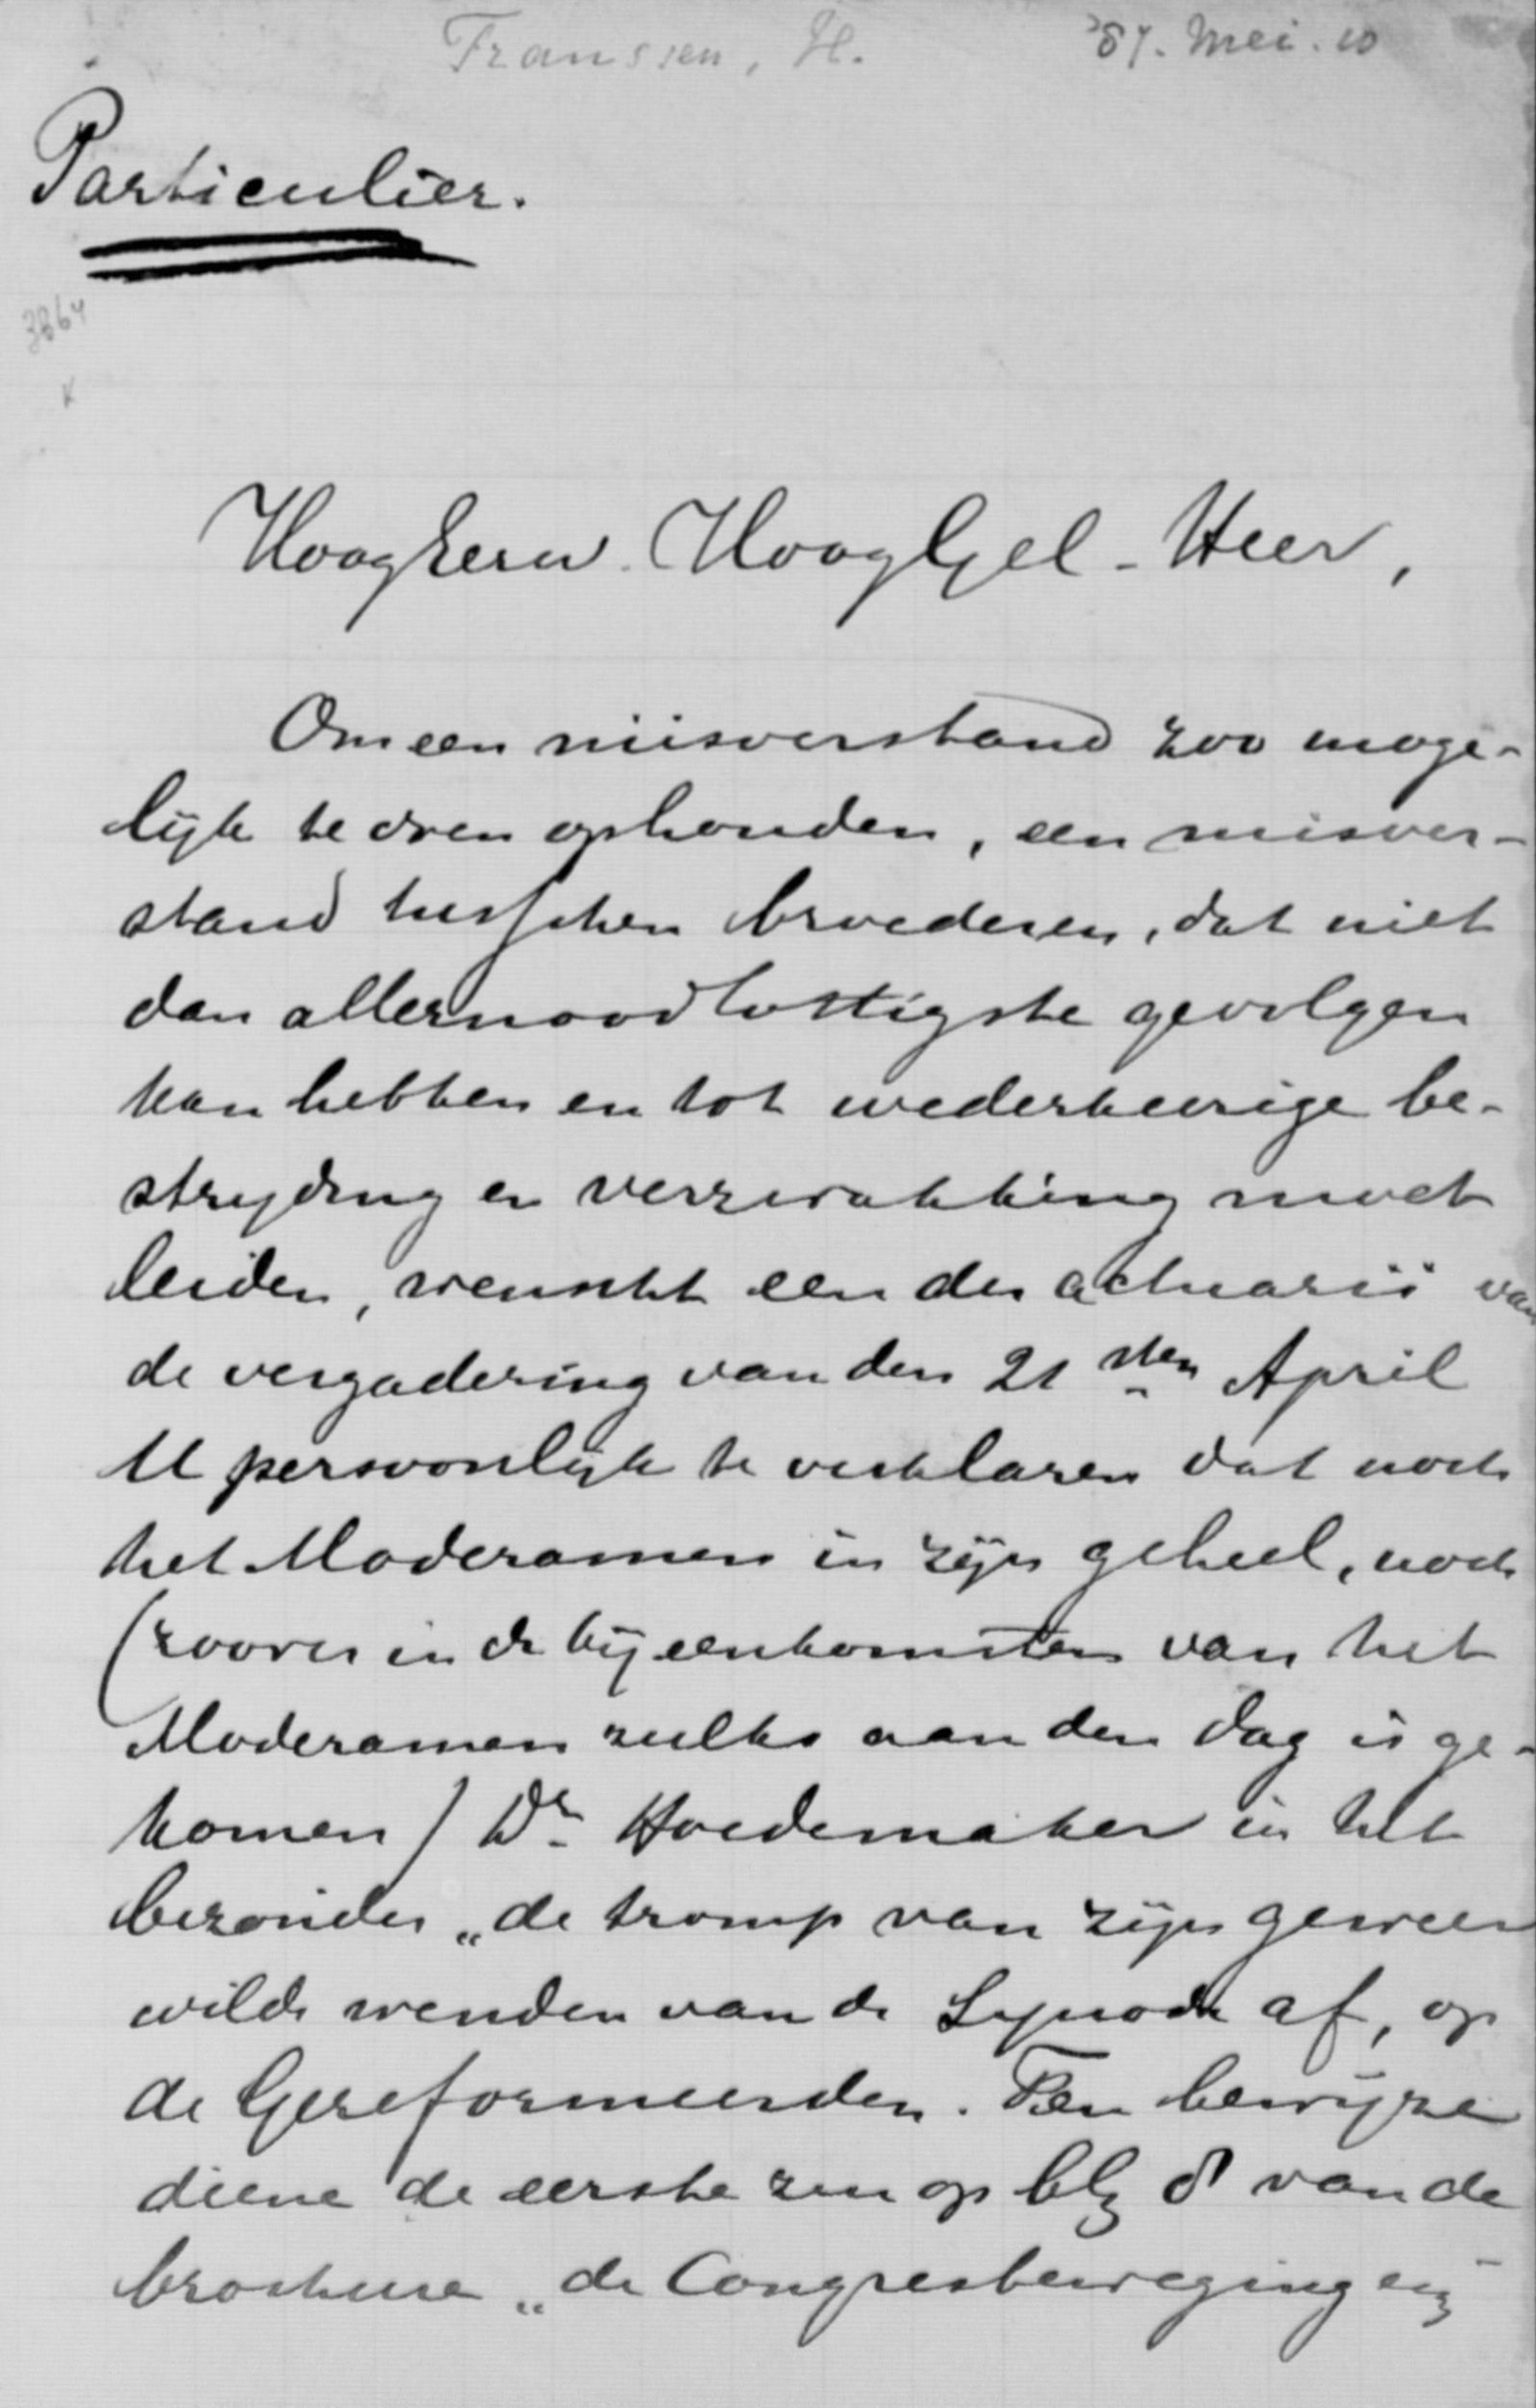 Franssen, H. '87. Mei. 10
Particulier.
3864
HoogEerw. HoogGel. Heer,
Om een misverstand zoo moge-
lijk te doen ophouden, een misver-
stand tusschen broederen, dat niet
dan allernoodlottigste gevolgen
kan hebben en tot wederkeerige be-
strijding en verzwakking moet
leiden, wenscht een der actuarii van
de vergadering van den 21sten April
U persoonlijk te verklaren dat noch
het Moderamen in zijn geheel, noch
(zoover in de bijeenkomsten van het
Moderamen zulks aan den dag is ge-
komen) Dr Hoedemaker in het
bezonder „de tromp van zijn geweer
wilde wenden van de Synode af, op
de Gereformeerden. Ten bewijze
diene de eerste zin op blz 8 van de
brochure „de Congresbeweging enz